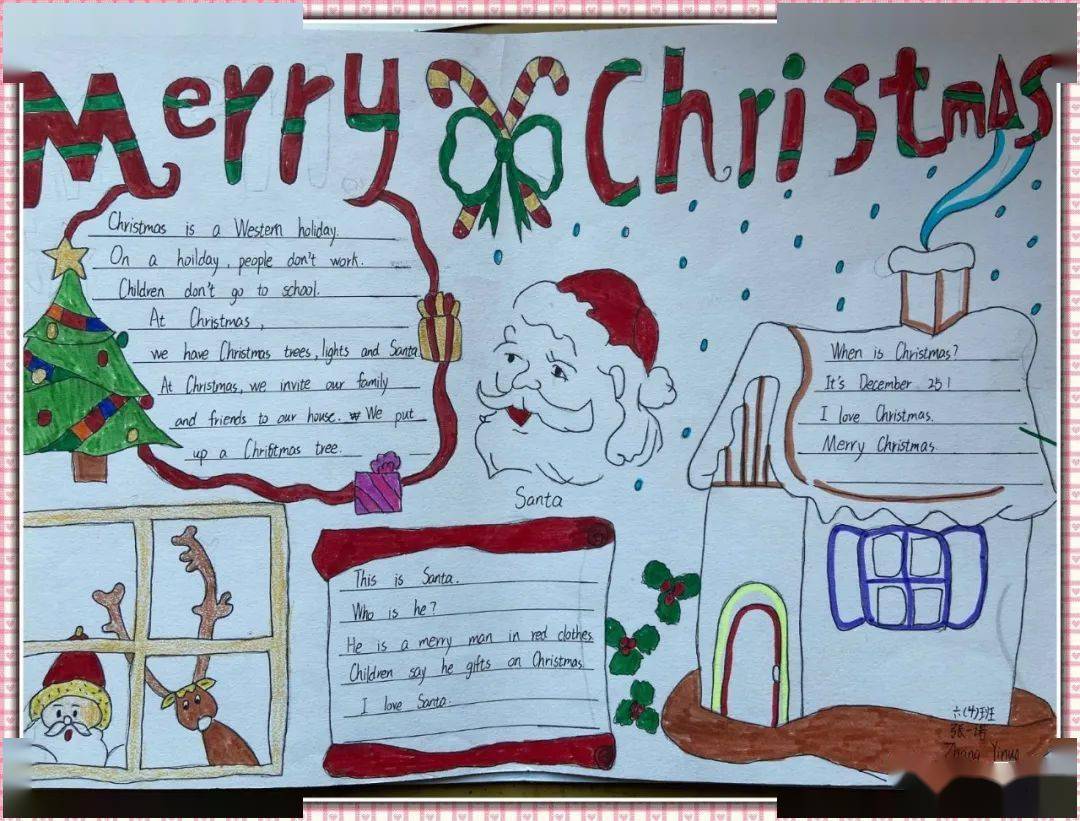 Merry Christmas
Christmas is a Western holiday.
On a hoilday, people don't work.
Children don't go to school.
At Christmas,
we have Christmas trees, lights and Santa
At Christmas, we invite our family
and friends to our house. We put
up a Christmas tree.
Santa
This is Santa.
Who is he?
He is a merry man in red clothes
Children say he gifts on Christmas
I love Santa.
When is Christmas?
It's December 25!
I love Christmas.
Merry Christmas.
六(4)班
张一诺
Zhang Yinuo